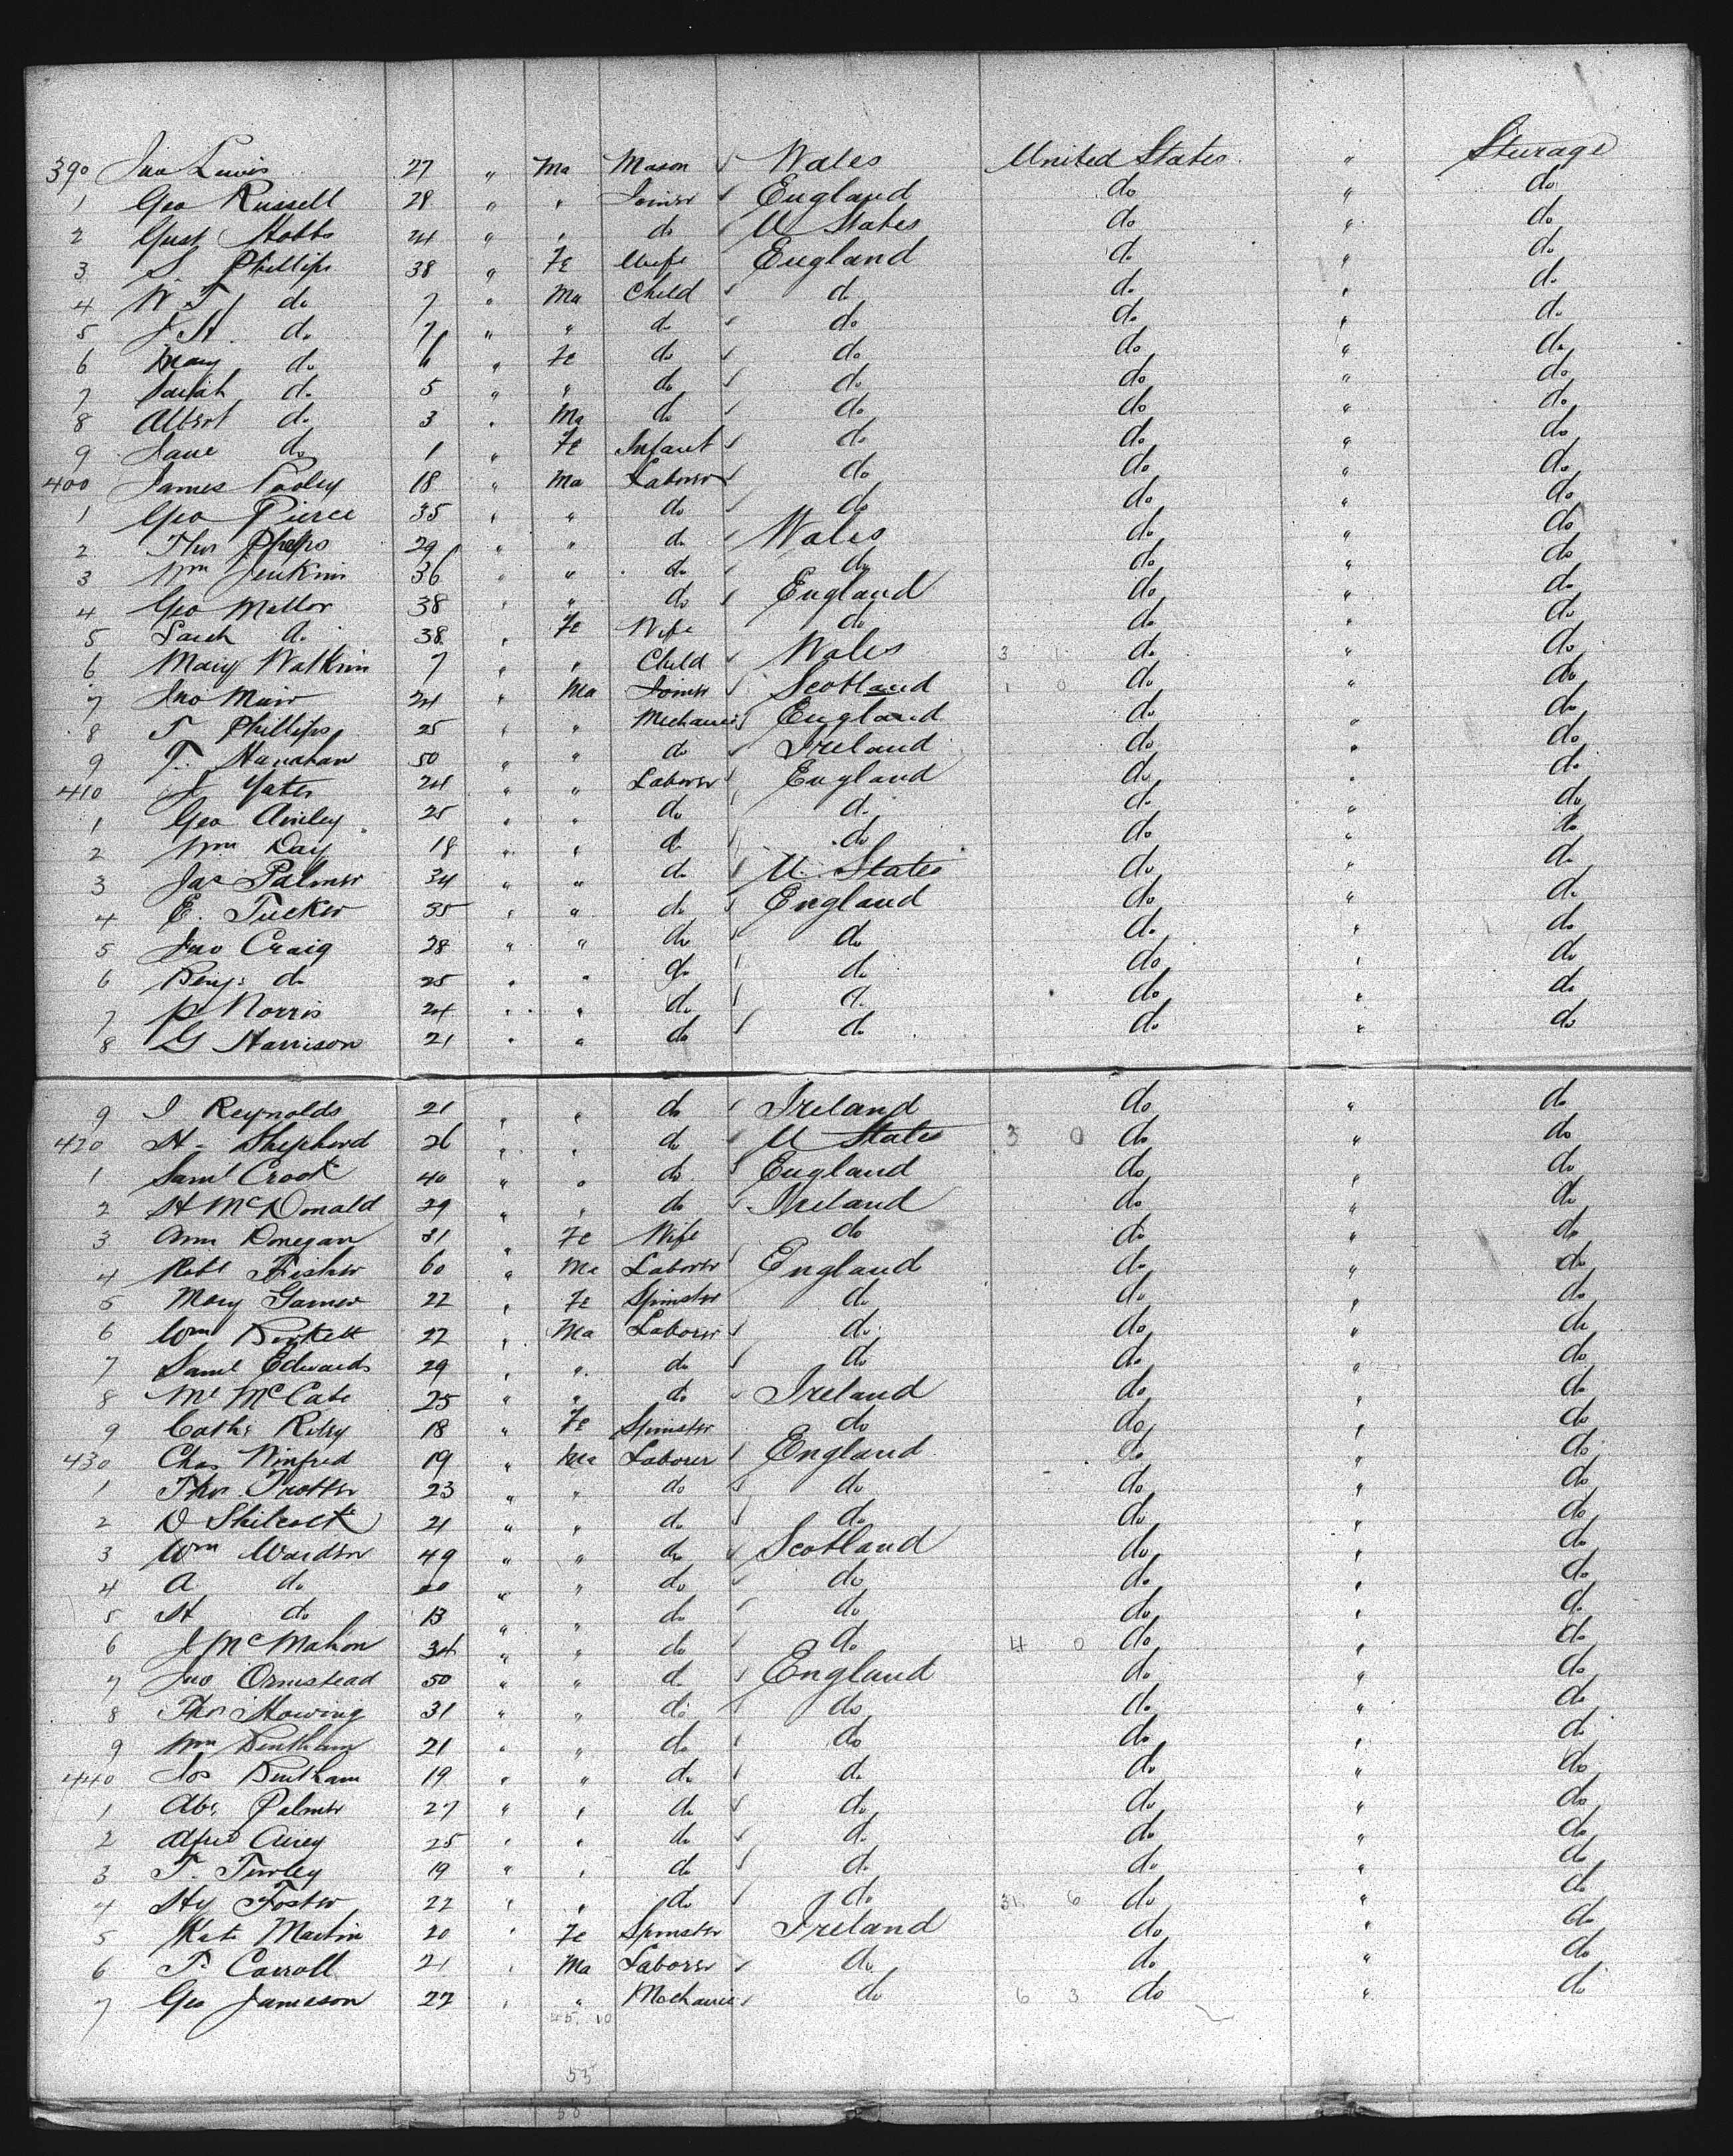 390 Jno Lewis 27 " Ma Mason ✓ Wales United States " Sterage
1 Geo Russell 28 " " Joiner ✓ England do " do
2 Gust Hobbs 24 " " do ✓ U States do " do
3 S. Phillips 38 " Fe Wife England do " do
4 W. T. do 7 " Ma Child ✓ do do " do
5 J. H. do 7 " " do ✓ do do " do
6 Mary do 6 " Fe do ✓ do do " do
7 Sarah do 5 " " do ✓ do do " do
8 Albert do 3 " Ma do ✓ do do " do
9 Jane do 1 " Fe Infant ✓ do do " do
400 James Pooley 18 " Ma Laborer ✓ do do " do
1 Geo Pierce 35 " " do ✓ do do " do
2 Thos Phelps 29 " " do ✓ Wales do " do
3 Wm Jenkins 36 " " do ✓ do do " do
4 Geo Mellor 38 " " do ✓ England do " do
5 Sarah do 38 " Fe Wife do do " do
6 Mary Watkins 7 " " Child ✓ Wales 3 1 do " do
7 Jno Muir 24 " Ma Joiner ✓ Scotland 1 0 do " do
8 T Phillips 25 " " Mechanic ✓ England do " do
9 T. Hanahan 50 " " do ✓ Ireland do " do
410 J Yates 24 " " Laborer ✓ England do " do
1 Geo Ainley 25 " " do ✓ do do " do
2 Wm Day 18 " " do ✓ do do " do
3 Jas Palmer 34 " " do ✓ U. States do " do
4 E. Tucker 35 " " do ✓ England do " do
5 Jno Craig 28 " " do ✓ do do " do
6 Benj: do 25 " " do ✓ do do " do
7 P Norris 24 " " do ✓ do do " do
8 G Harrison 21 " " do ✓ do do " do
9 J Reynolds 21 " " do ✓ Ireland do " do
420 H - Shepherd 26 " " do ✓ U States 3 0 do " do
1 Saml Crook 40 " " do ✓ England do " do
2 H McDonald 29 " " do ✓ Ireland do " do
3 Ann Donegan 31 " Fe Wife do do " do
4 Robt Fisher 60 " Ma Laborer ✓ England do " do
5 Mary Garner 22 " Fe Spinster do do " do
6 Wm 22 " Ma Laborer ✓ do do " do
7 Saml Edwards 29 " " do ✓ do do " do
8 Mt McCabe 25 " " do ✓ Ireland do " do
9 Cath: Riley 18 " Fe Spinster do do " do
430 Chas Winfred 19 " Ma Laborer ✓ England do " do
1 Thos Trotter 23 " " do ✓ do do " do
2 D 21 " " do ✓ do do " do
3 Wm Warden 49 " " do ✓ Scotland do " do
4 A do " " do ✓ do do " do
5 H do 13 " " do ✓ do do " do
6 J McMahon 34 " " do ✓ do 4 0 do " do
7 Jno Ormstead 50 " " do ✓ England do " do
8 Thos Howing 31 " " do ✓ do do " do
9 Wm Bentham 21 " " do ✓ do do " do
440 Jos Bentham 19 " " do ✓ do do " do
1 Abr. Palmer 27 " " do ✓ do do " do
2 Alfred Airey 25 " " do ✓ do do " do
3 T. Turley 19 " " do ✓ do do " do
4 Hy Foster 22 " " do ✓ do 31. 6 do " do
5 Kate Martin 20 " Fe Spinster Ireland do " do
6 P. Carroll 21 " Ma Laborer ✓ do do " do
7 Geo Jameson 22 " " Mechanic ✓ do 6 3 do " do
45. 10
53
58